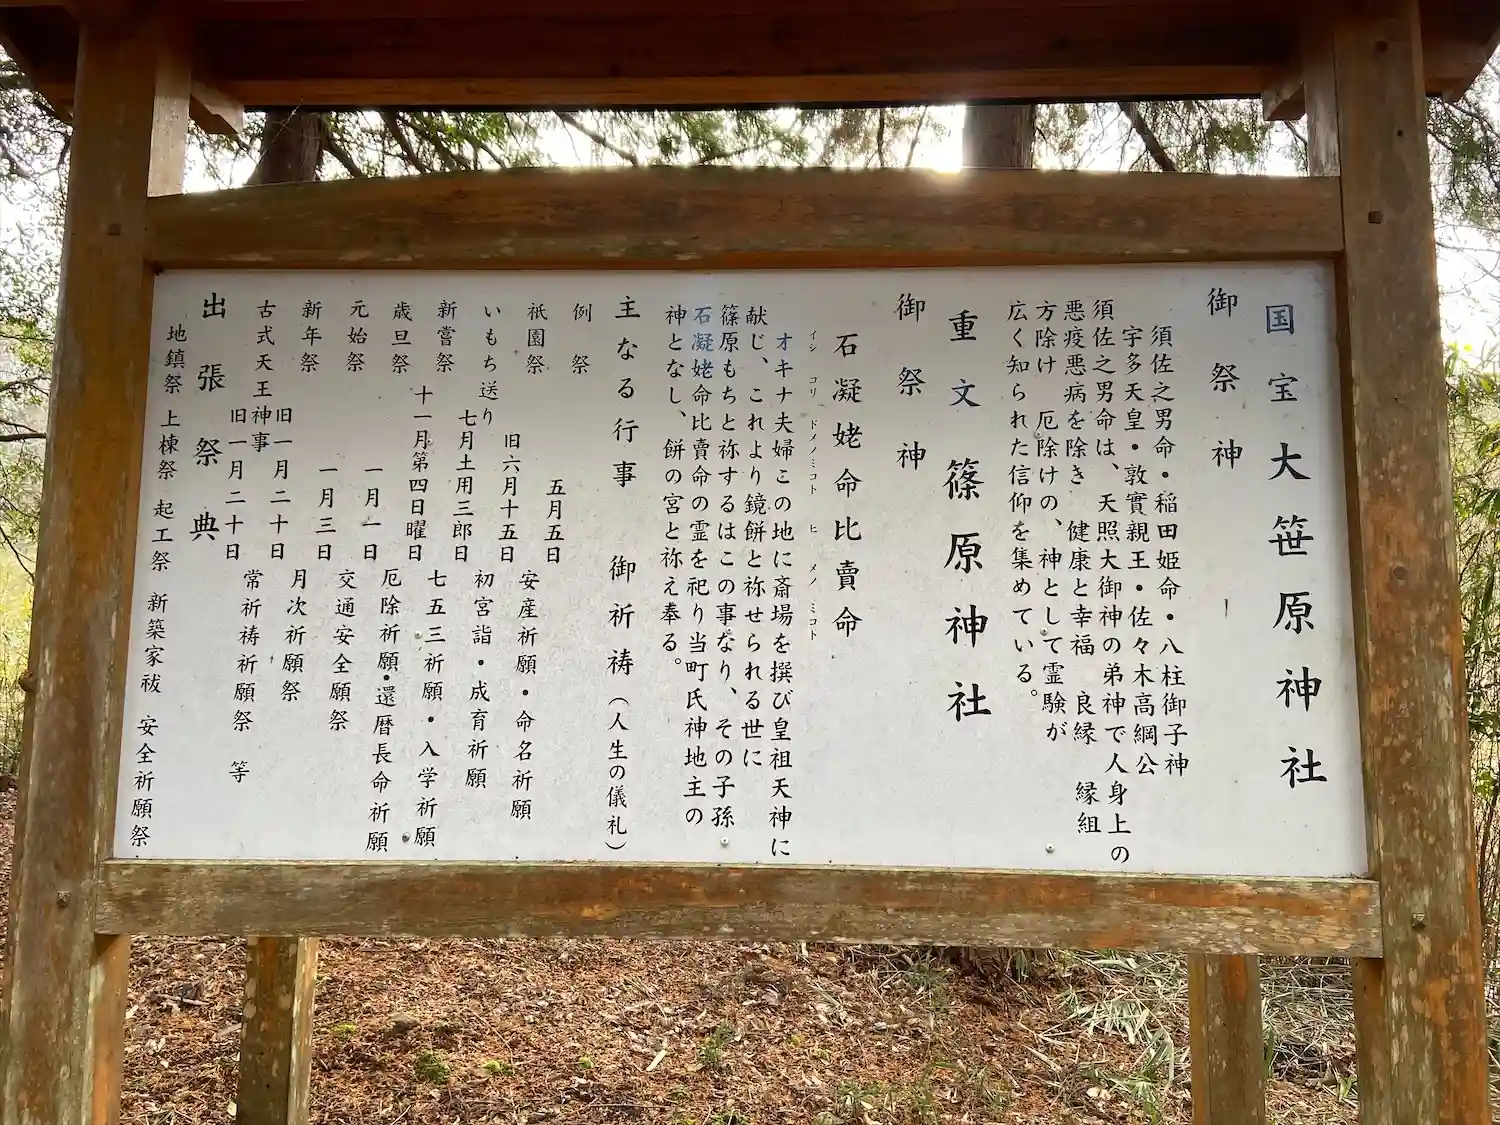 国宝大笹原神社
御祭神
須佐之男命・稲田姫命・八柱御子神
宇多天皇・敦實親王・佐々木高綱公
須佐之男命は、天照大御神の弟神で人身上の
悪疫悪病を除き 健康と幸福 良縁 縁組
方除け 厄除けの、神として霊験が
広く知られた信仰を集めている。
重文篠原神社
御祭神
石凝姥命比賣命
イシ コリ ドメノミコト ヒ メノ ミコト
オキナ夫婦この地に斎場を撰び皇祖天神に
献じ、これより鏡餅と祢せられる世に
篠原もちと祢するはこの事なり、その子孫
石凝姥命比賣命の霊を祀り当町氏神地主の
神となし、餅の宮と祢え奉る。
主なる行事 御祈祷（人生の儀礼）
例祭 五月五日
祇園祭 旧六月十五日
いもち送り 七月土用三郎日
新嘗祭 十一月第四日曜日
歳旦祭 一月一日
元始祭 一月三日
新年祭 旧一月二十日
古式天王神事 旧一月二十日
安産祈願・命名祈願
初宮詣・成育祈願
七五三祈願・入学祈願
厄除祈願・還暦長命祈願
交通安全願祭
月次祈願祭
常祈祷祈願祭 等
出張祭典
地鎮祭 上棟祭 起工祭 新築家祓 安全祈願祭